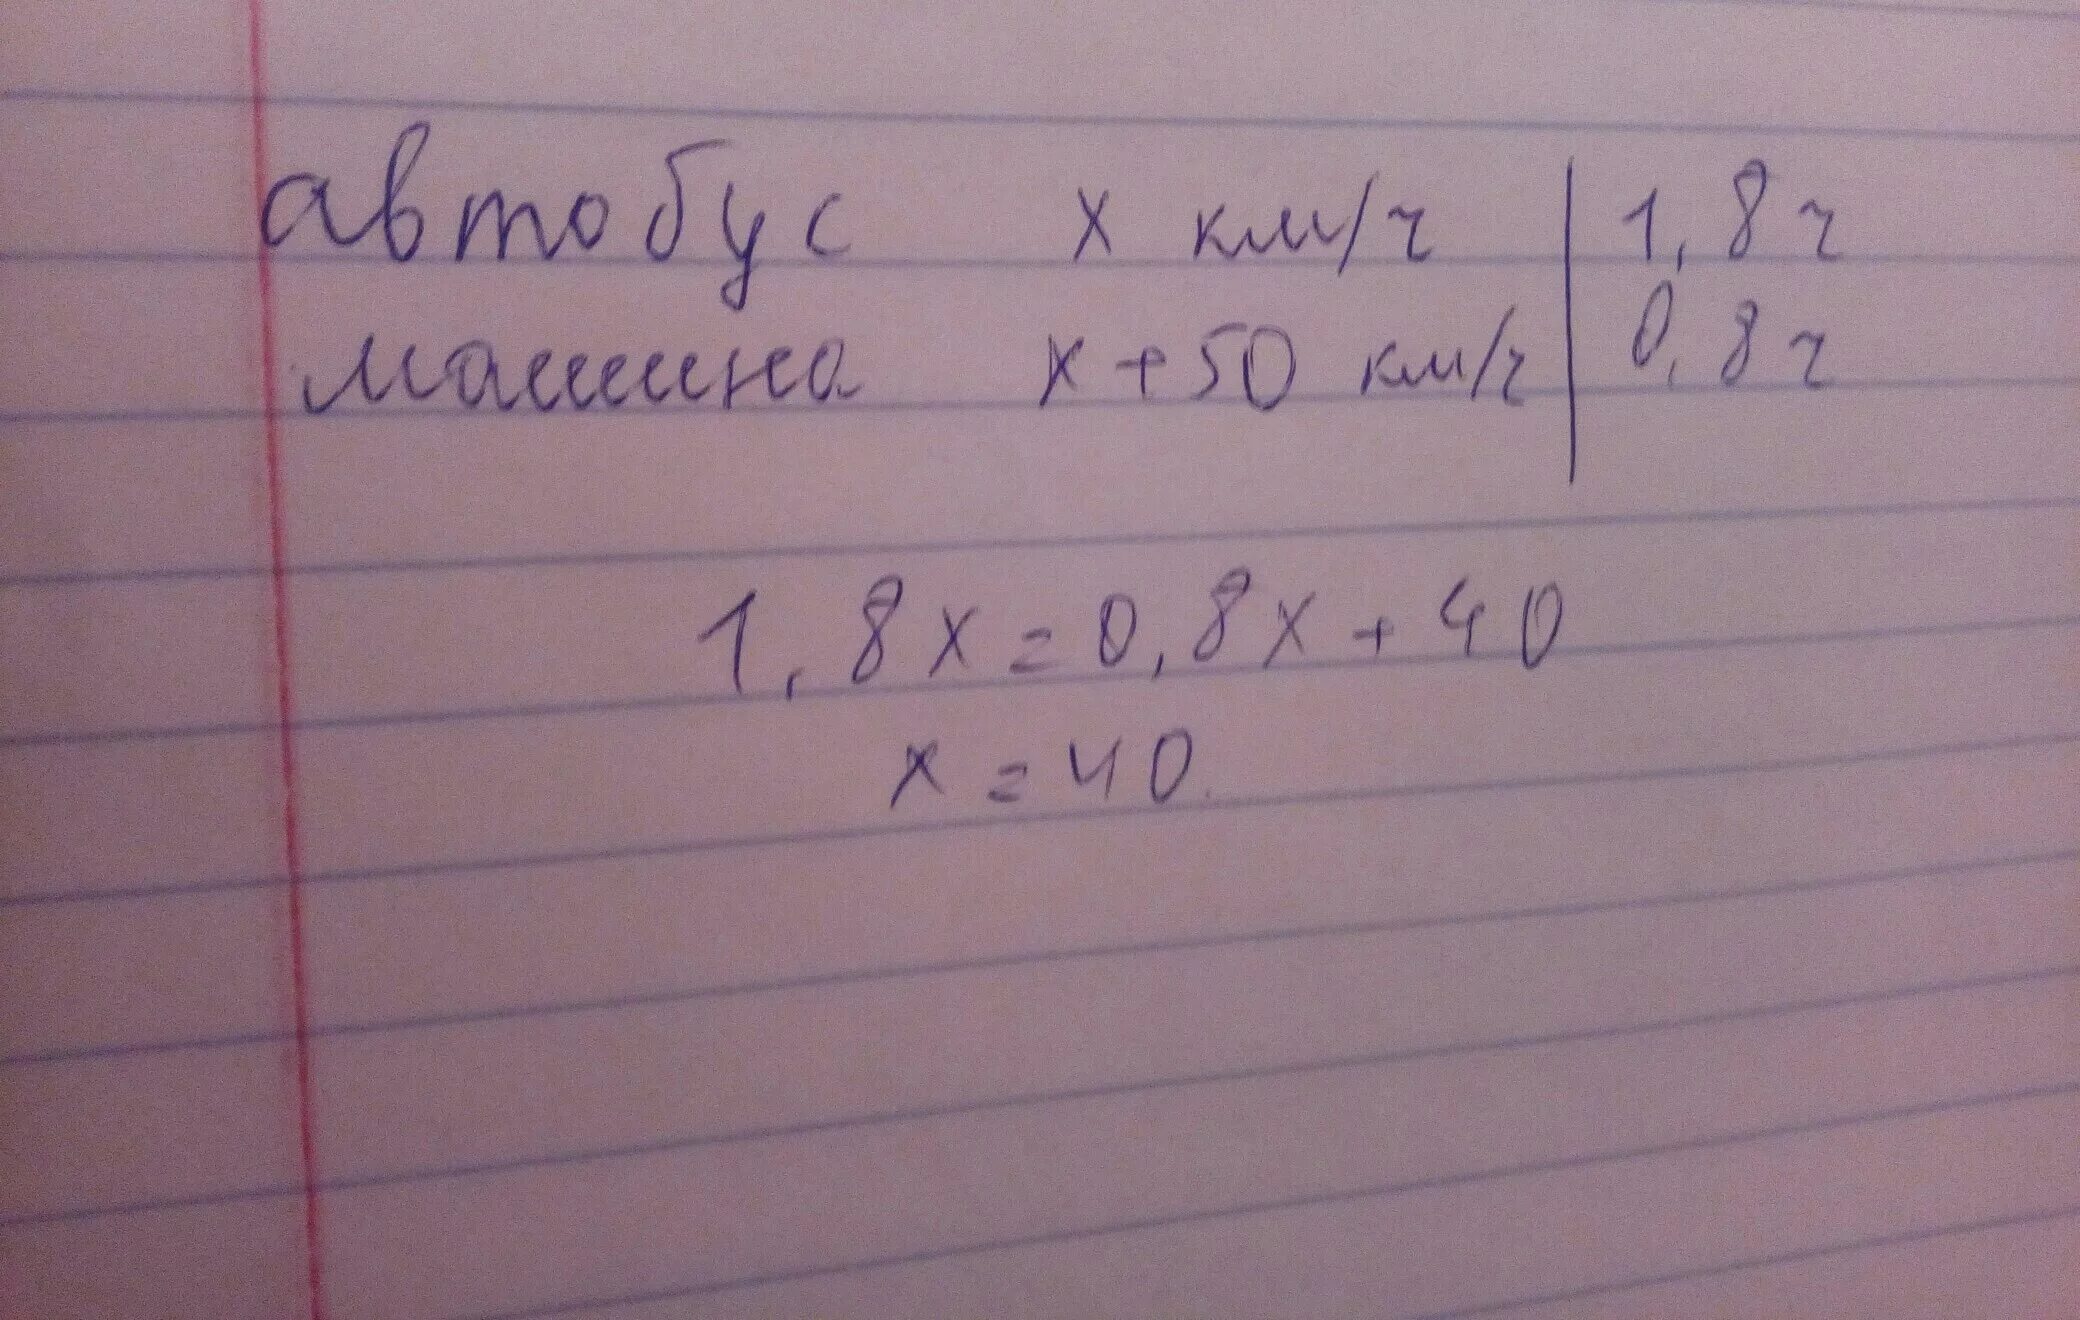 автобус x км/ч | 1,8 ч
машина x+50 км/ч | 0,8 ч
1,8x=0,8x+40
x=40.